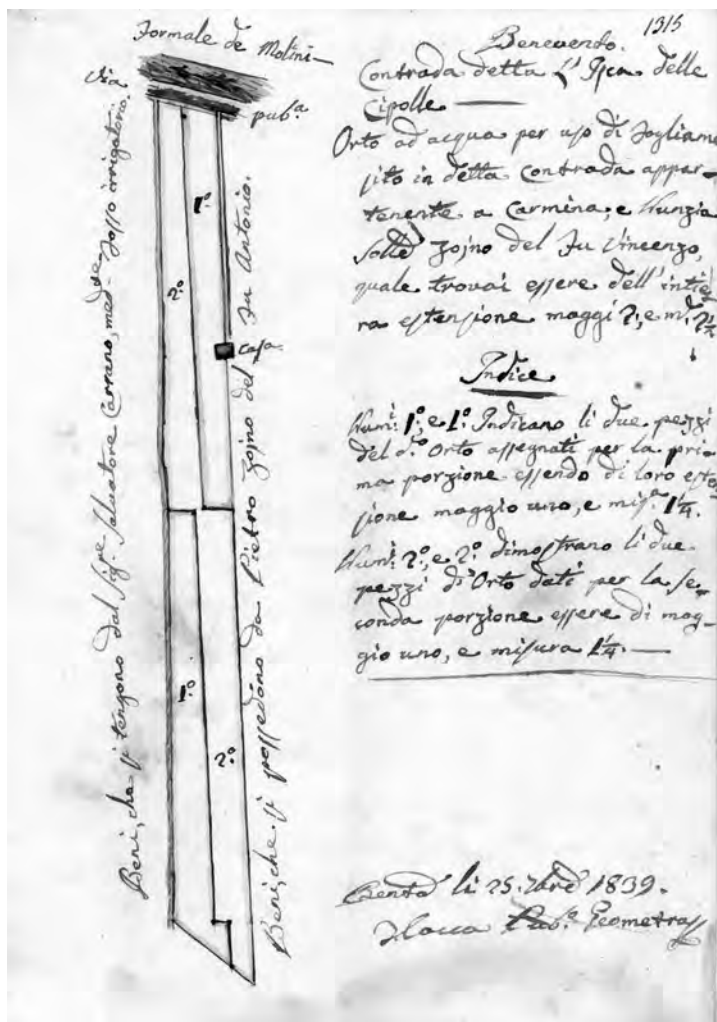 1315
Formale de Molini
Via
pub.ª
1º.
2º.
casa
1º.
2º.
Beni, che si tengono dal Sig.re Salvatore Carrano, med.te fosso irrigatorio.
Beni, che si possedono da Pietro Zojno del fu Antonio.
Benevento.
Contrada detta L' Isca delle
Cipolle
Orto ad acqua per uso di fogliame
sito in detta Contrada appar-
tenente a Carmina, e Nunzia
Zojno del fu Vincenzo,
quale trovai essere dell' intie-
ra estensione maggi 2, e m. 2½
Indice
Num.i 1º, e 1º. Indicano li due pezzi
del d.º Orto assegnati per la pri-
ma porzione essendo di loro esten
sione maggio uno, e mis.ª 1¼.
Num.i 2º, e 2º. dimostrano li due
pezzi d'Orto dati per la se-
conda porzione essere di mag-
gio uno, e misura 1¼.
li 25. 1839.
Pub.º Geometra